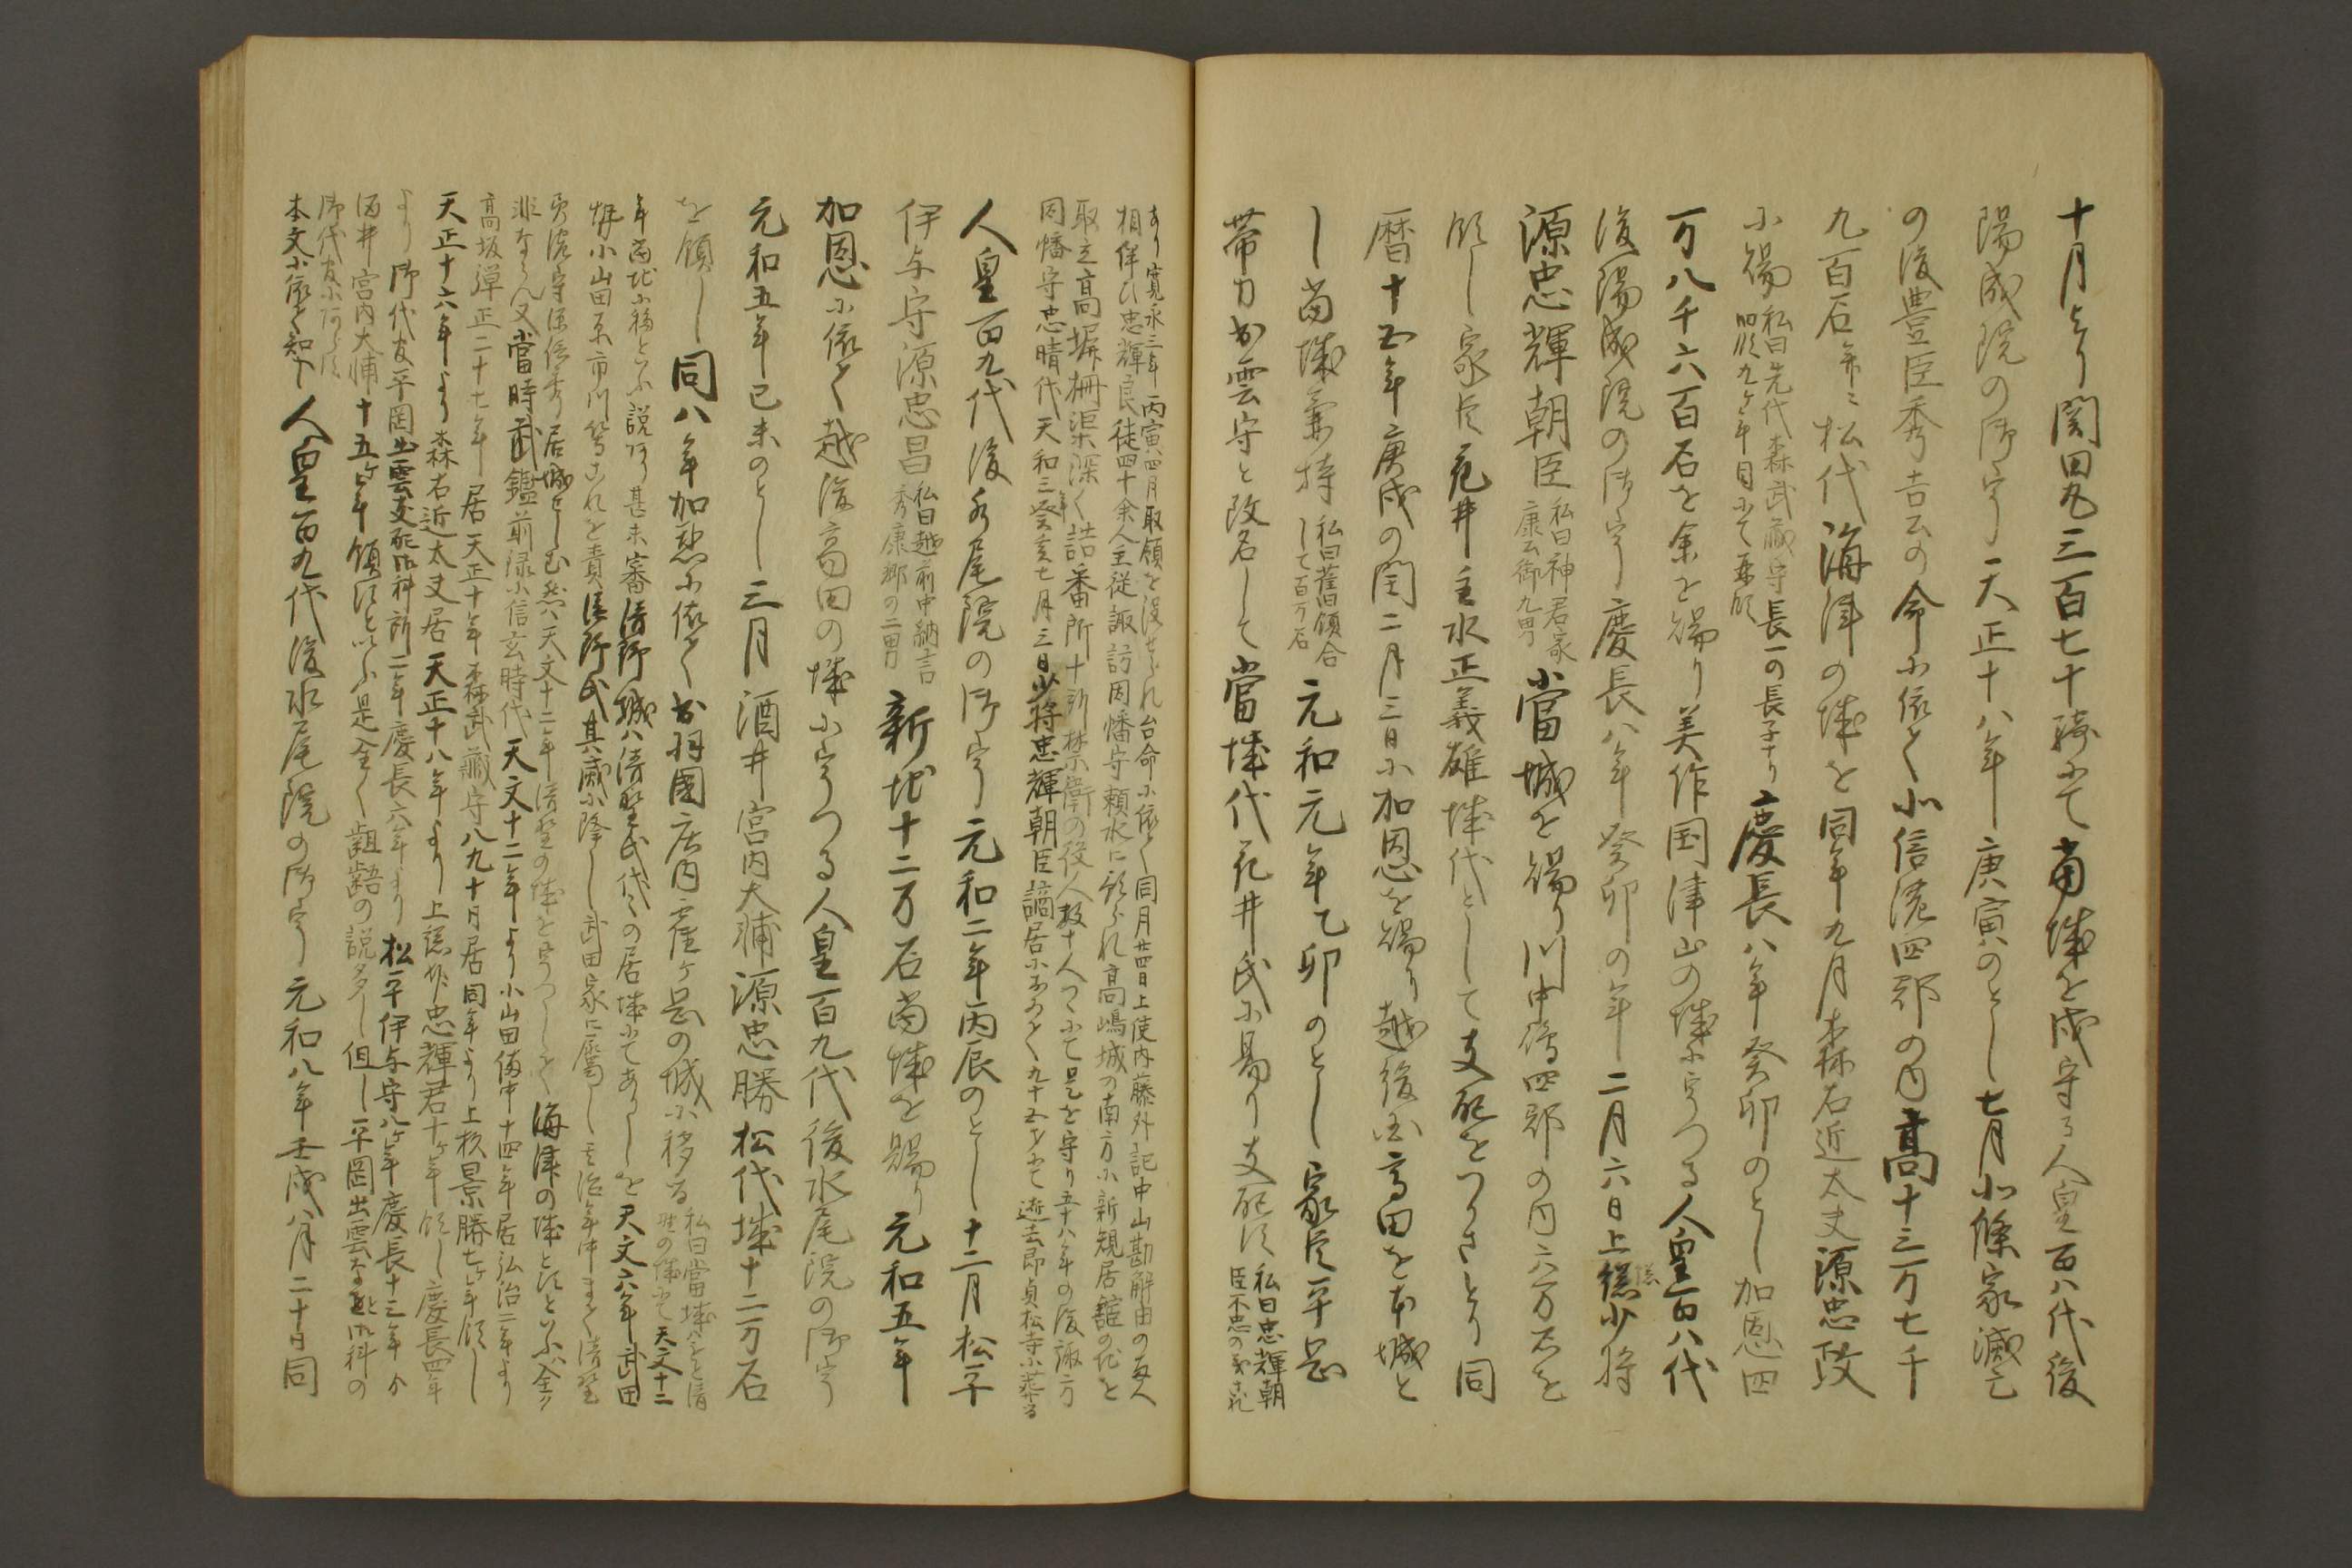 十月より関田丸三百七十騎にて當城を戍守る人皇百八代後
陽成院の御宇天正十八年庚寅のとし七月小條家滅亡
の後豊臣秀吉公の命に依て北信濃四郡の内高十三万七千
九百石并ニ松代海津の城を同年九月森右近太夫源忠政
に賜
私曰先代森武蔵守長一の長子なり
如斯九ケ年目にて再領
慶長八年癸卯のとし加恩四
万八千六百石を余を賜り美作国津山の城にうつる人皇百八代
後陽成院の御宇慶長八年癸卯の年二月六日上総少将
源忠輝朝臣
私曰神君家
康公御九男
當城を賜り川中島四郡の内六万石を
領し家臣花井主水正義雄城代として支配をつかさとり同
暦十五年庚戌の閏二月三日に加恩を賜り越後国高田を本城と
し當城兼持
私曰舊領合
して百万石
元和元年乙卯のとし家臣平岩
帯刀出雲守と改名して當城代花井氏に易り支配す
私曰忠輝朝
臣不忠の
あり寛永三年丙寅四月取領を没せられ台命に依て同月廿四日上使内藤外記中山勘解由の両人
相伴ひ忠輝良徒四十余人主従諏訪因幡守頼水に預られ高嶋城の南方に新規居舘の地を
取立高塀柵渠深く詰番所十所禁衛の役人数十人つゝにて是を守り五十八年の後諏方
因幡守忠晴代天和三癸亥年七月三日少将忠輝朝臣謫居におゐて九十五才にて逝去即貞松寺に葬る
人皇百九代後水尾院の御宇元和二年丙辰のとし十二月松平
伊与守源忠昌
私曰越前中納言
秀康卿の二男
新地十二万石當城を賜り元和五年
加恩に依て越後高田の城にうつる人皇百九代後水尾院の御宇
元和五年己未のとし三月酒井宮内大輔源忠勝松代城十二万石
を領し同八年加恩に依て出羽國庄内鶴ケ岡の城に移る
私曰當城ハもと清
野の城にて天文十二
年當地に移といふ説あり甚未審清野城ハ清野氏代々の居城にてありしを天文六年武田
幷小山田原市川等これを責清野氏其威に降し武田家に屬し
濃守源信秀居城とし天文十二年清野の城をうつして海津の城とすといふハ全ク
非ならん又當時武鑑前録に信玄時代天文十二年より小山田備中十四年居弘治二年より
高坂弾正二十七年居天正十年森武蔵守八九十月居同年より上杉景勝七ケ年領し
天正十六年より森右近太夫居天正十八年より上総介忠輝君十ケ年領し慶長四年
より御代官平岡出雲支配御料所二年慶長六年より松平伊与守八ケ年慶長十三年か
酒井宮内大輔十五ケ年領すといふ是全く齟齬の説多し但し平岡出雲支配御料の
御代官にあらす
本文に依て知へし人皇百九代後水尾院の御宇元和八年壬戌八月二十日同